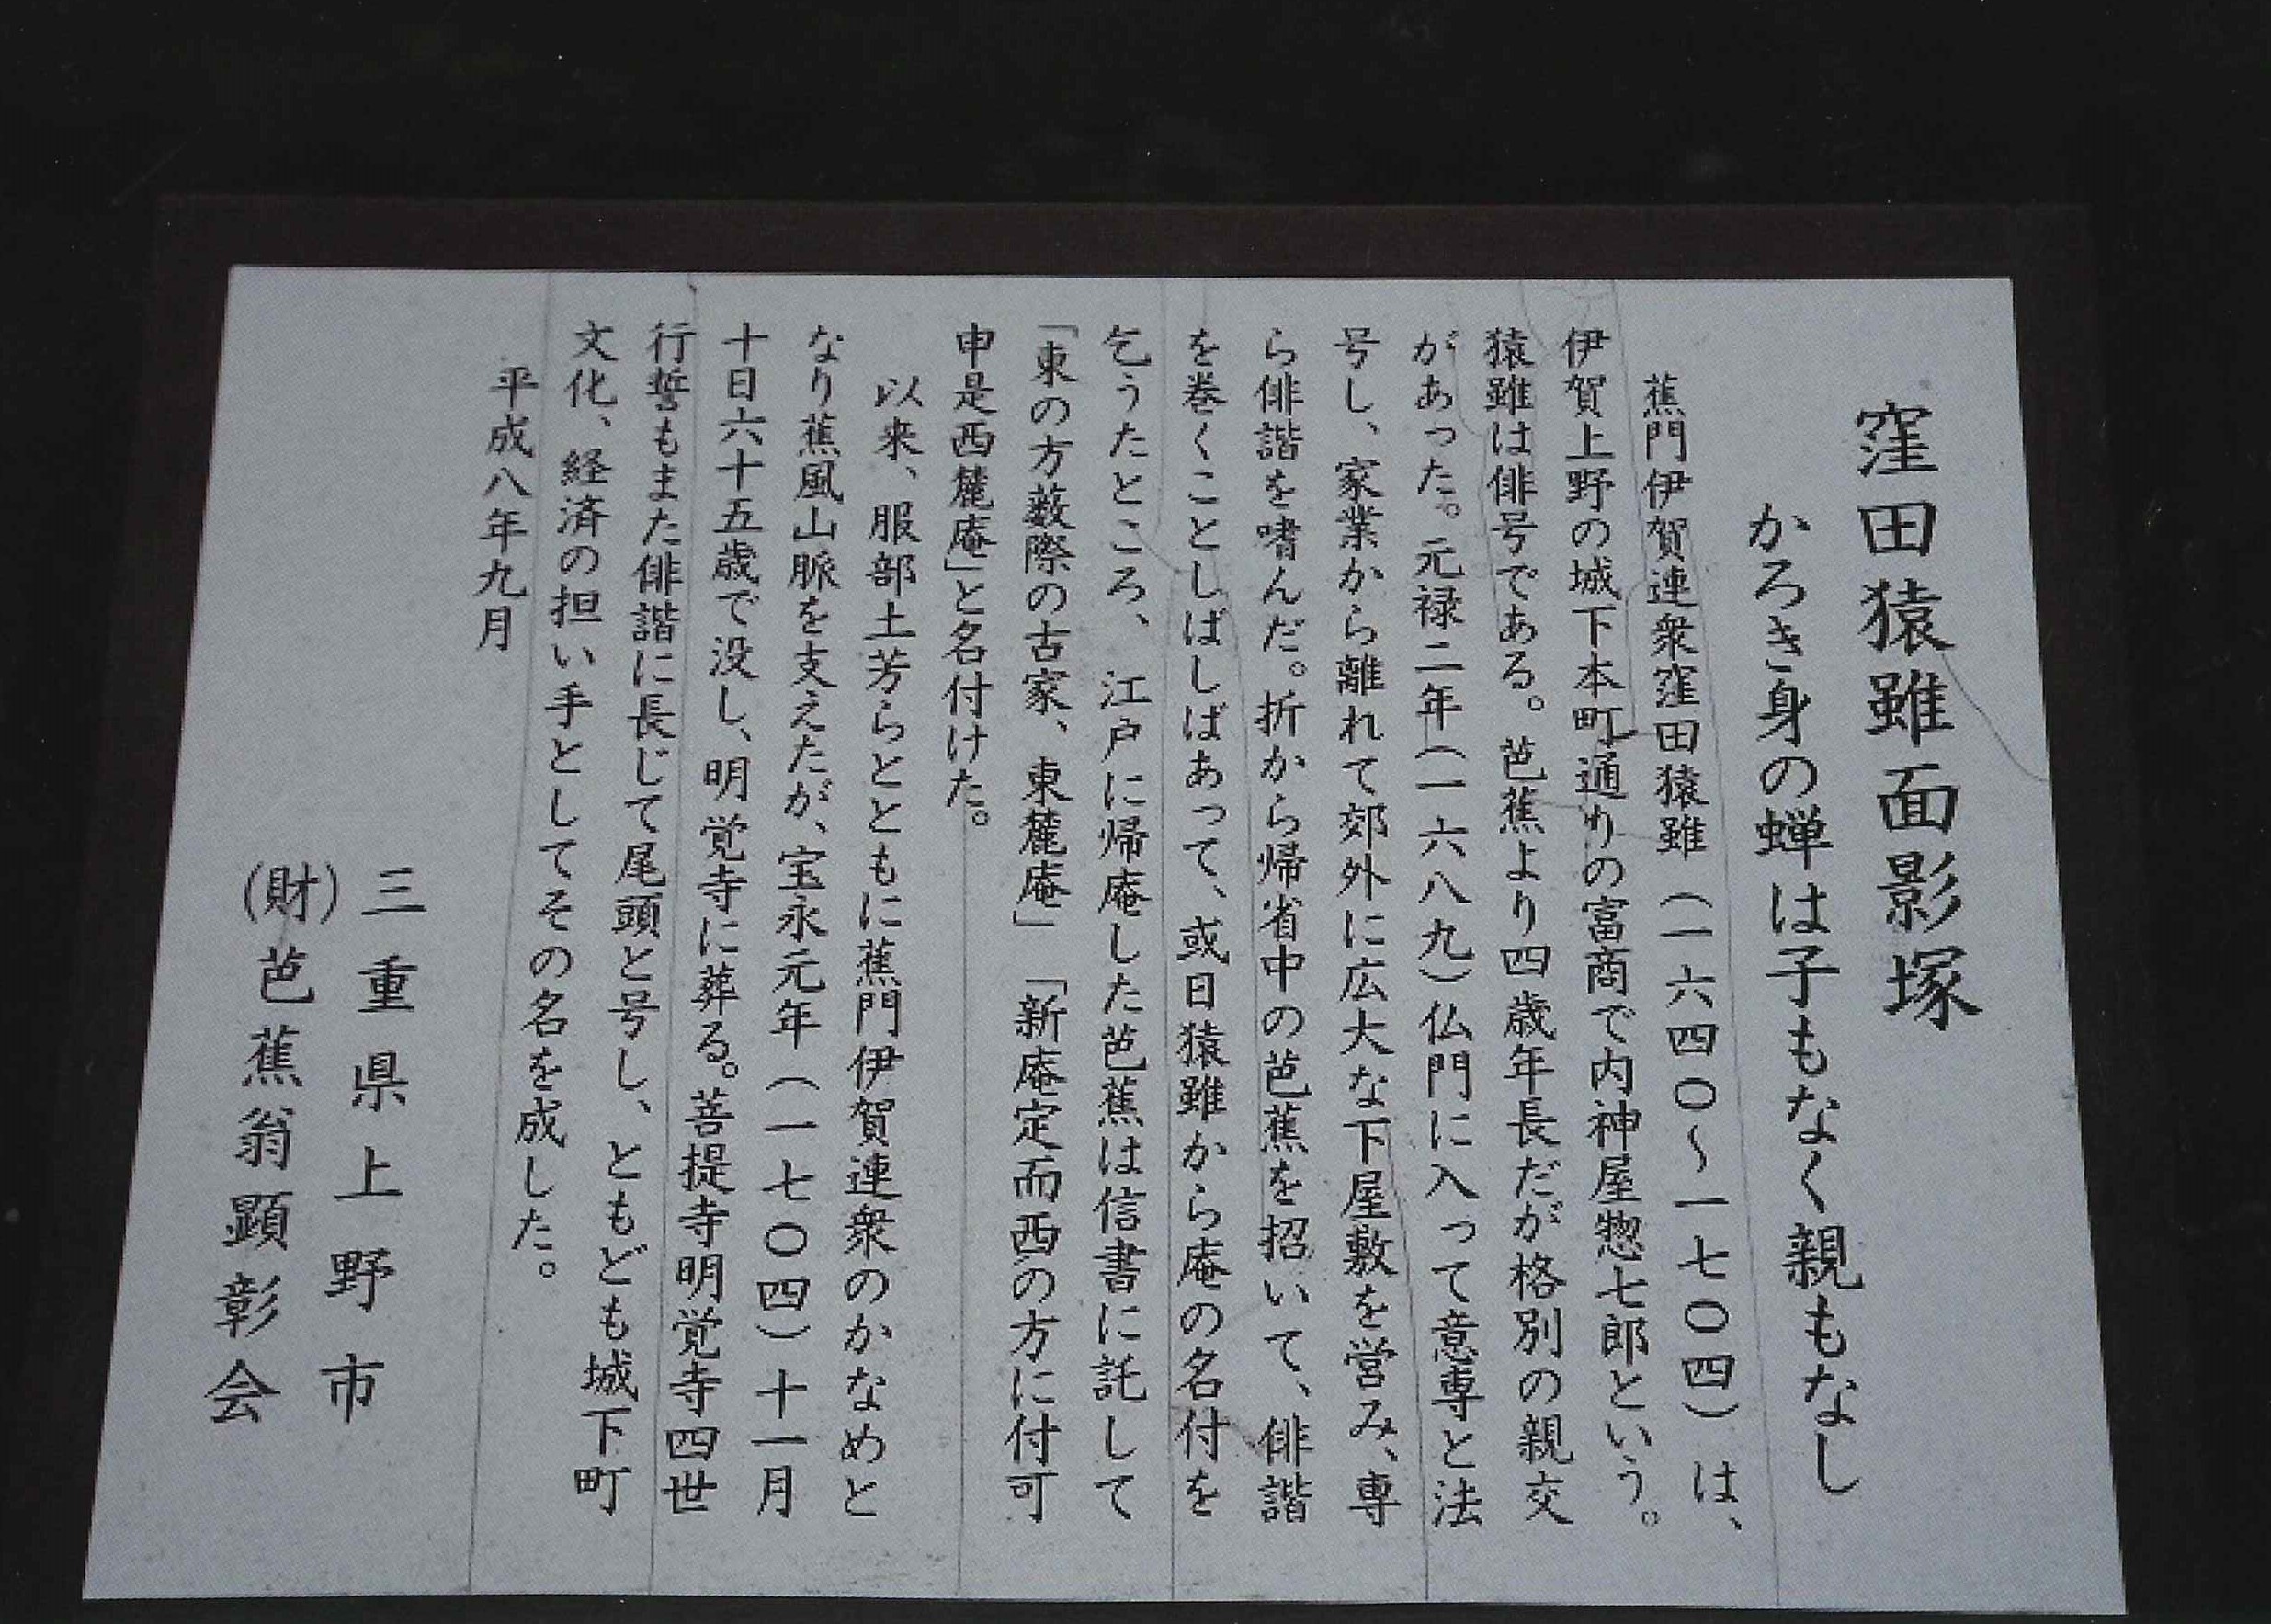 窪田猿雖面影塚
かろき身の蝉は子もなく親もなし
蕉門伊賀連衆窪田猿雖（一六四〇～一七〇四）は、
伊賀上野の城下本町通りの富商で内神屋惣七郎という。
猿雖は俳号である。芭蕉より四歳年長だが格別の親交
があった。元禄二年（一六八九）仏門に入って意専と法
号し、家業から離れて郊外に広大な下屋敷を営み、専
ら俳諧を嗜んだ。折から帰省中の芭蕉を招いて、俳諧
を巻くことしばしばあって、或日猿雖から庵の名付を
乞うたところ、江戸に帰庵した芭蕉は信書に託して
「東の方藪際の古家、東麓庵」「新庵定而西の方に付可
申是西麓庵」と名付けた。
以来、服部土芳らとともに蕉門伊賀連衆のかなめと
なり蕉風山脈を支えたが、宝永元年（一七〇四）十一月
十日六十五歳で没し、明覚寺に葬る。菩提寺明覚寺四世
行誓もまた俳諧に長じて尾頭と号し、ともども城下町
文化、経済の担い手としてその名を成した。
平成八年九月
三重県上野市
(財)芭蕉翁顕彰会